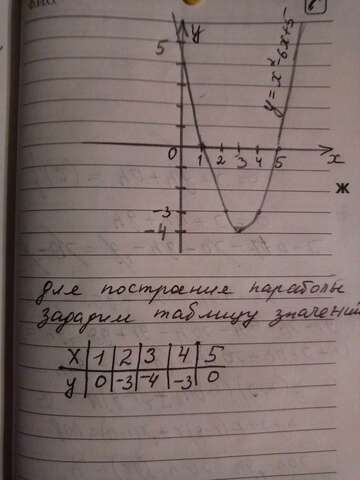 y
5
y=x²-6x+5
0 1 2 3 4 5 x
ж
-3
-4
для построение параболы
зададим таблицу значений
x 1 2 3 4 5
y 0 -3 -4 -3 0